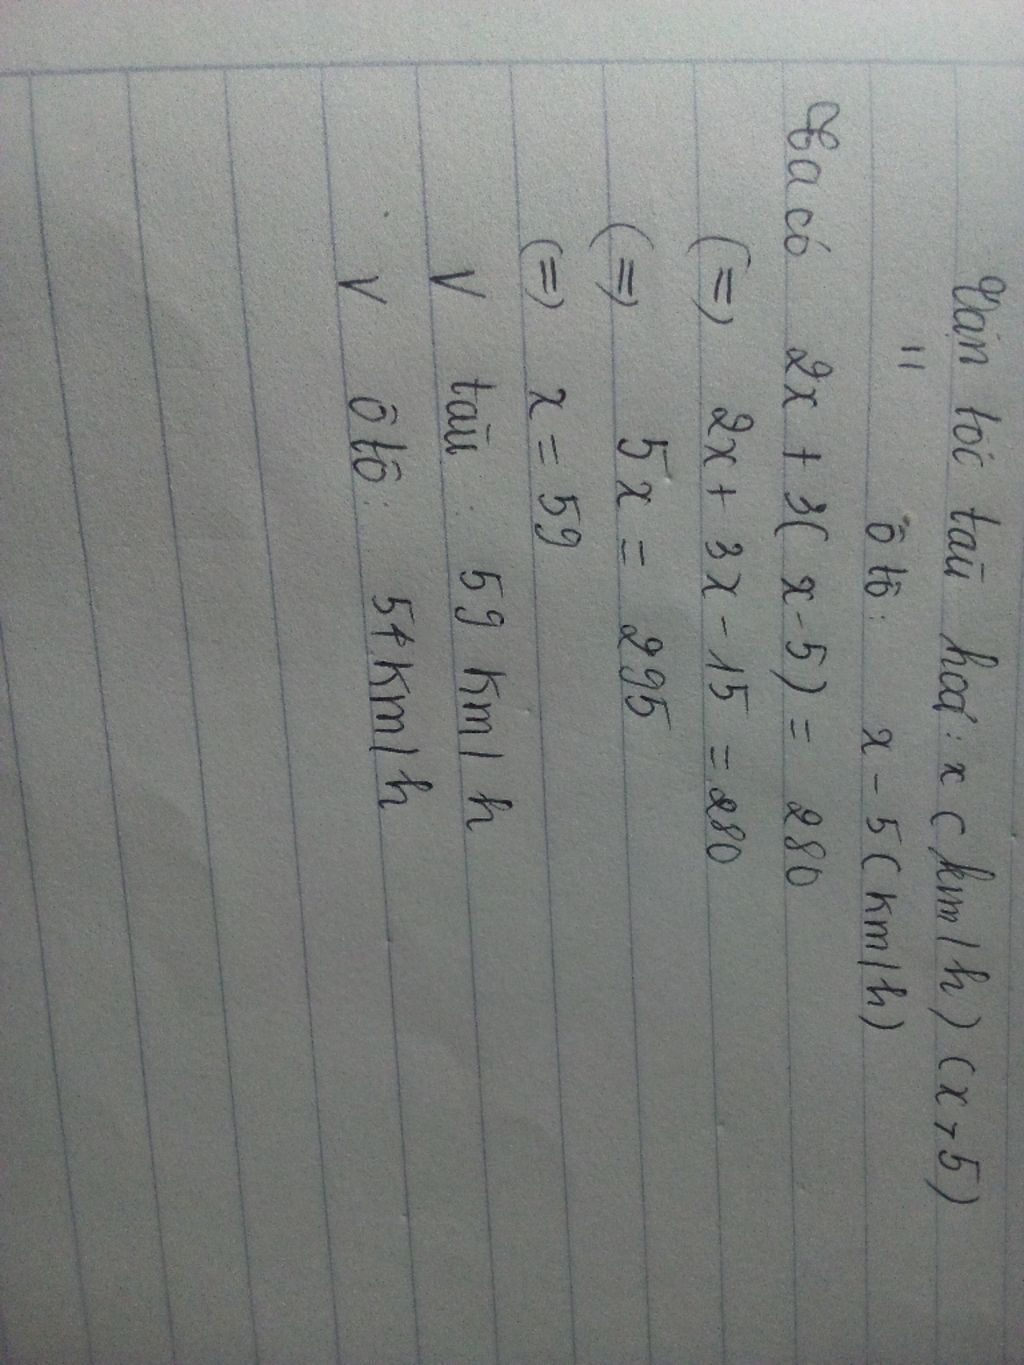 Vận tốc tàu hoả: x (km/h) (x > 5)
" ô tô: x - 5 (km/h)
Ta có 2x + 3(x - 5) = 280
(=) 2x + 3x - 15 = 280
(=) 5x = 295
(=) x = 59
V tàu: 59 km/h
V ô tô: 54 km/h